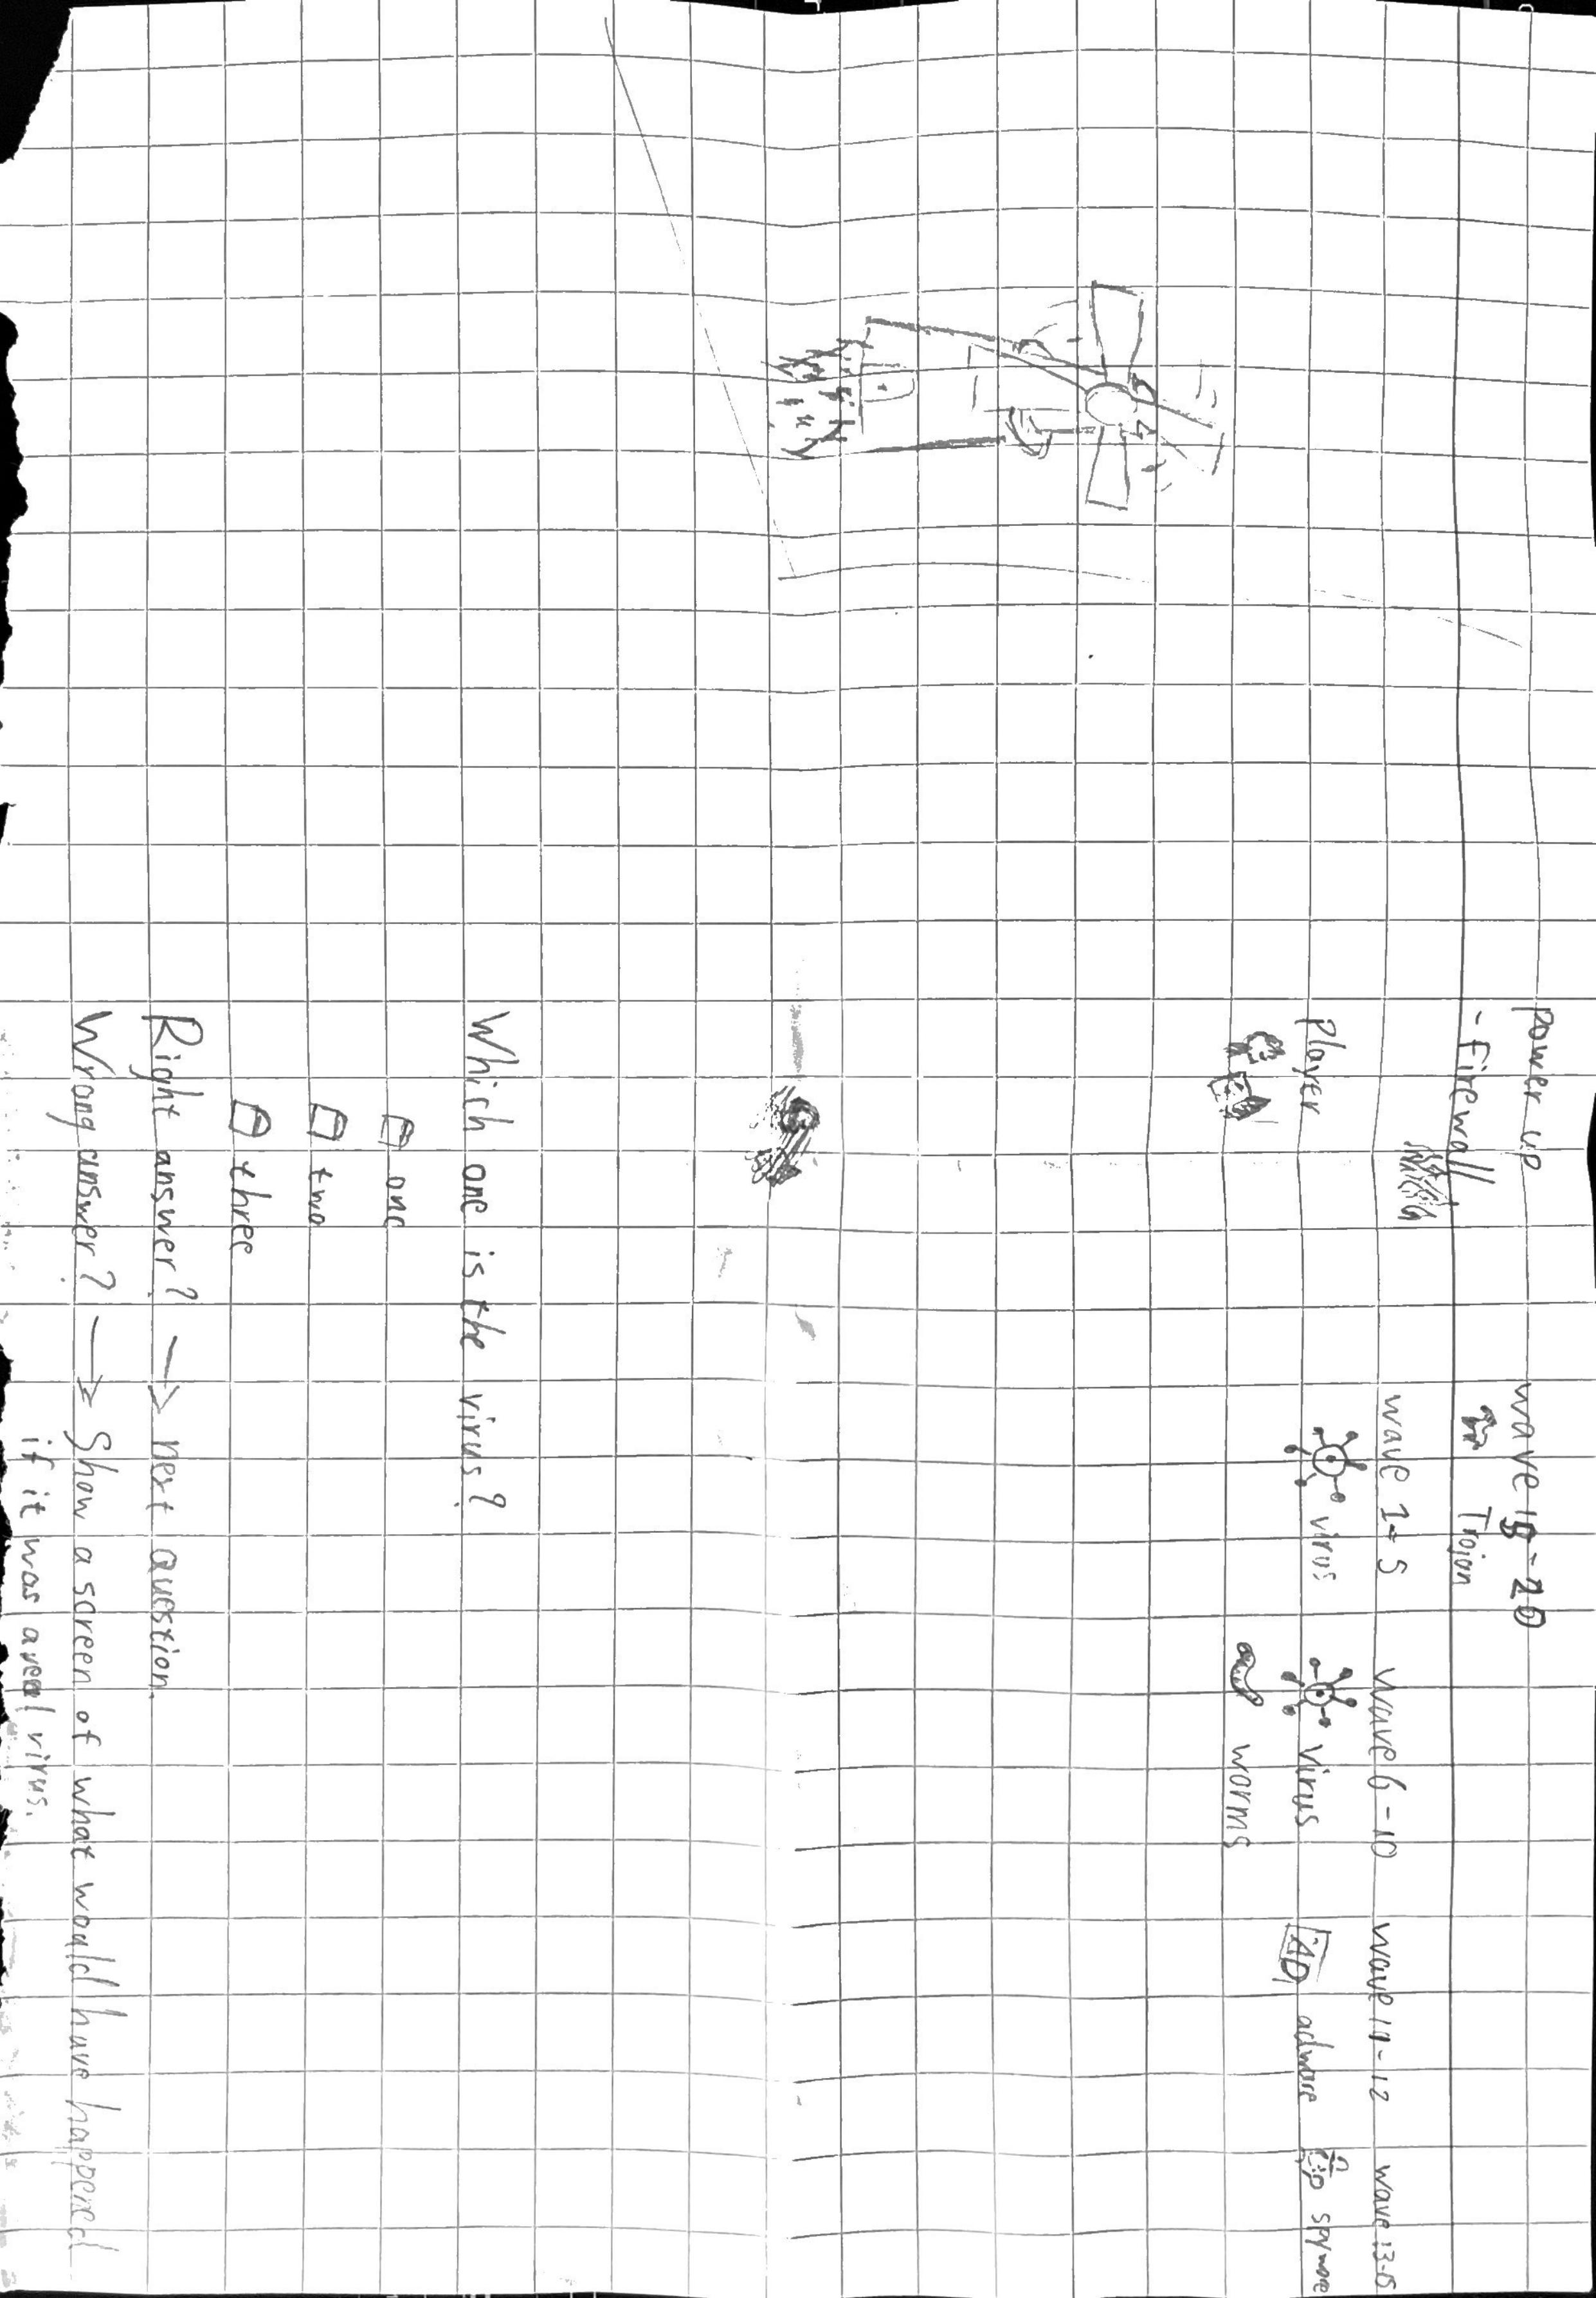 Power up
- Firewall
Player
wave 18-20
Trojan
wave 1-5
virus
wave 6-10
virus
worms
wave 11-12
AD adware
wave 13-15
spyware
Which one is the virus?
one
two
three
Right answer? → next question.
Wrong answer? → Show a screen of what would have happened
if it was a real virus.